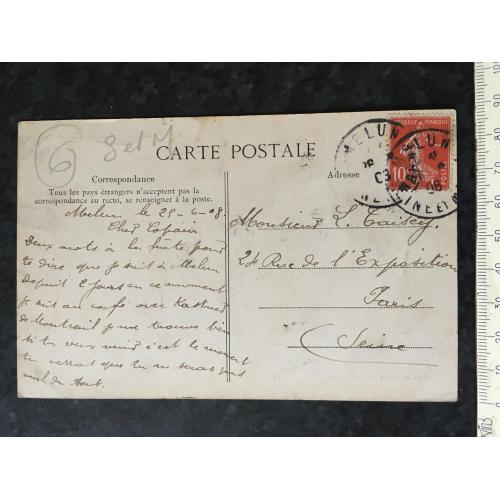 6 S et M
CARTE POSTALE
Correspondance
Adresse
Tous les pays étrangers n'acceptent pas la
correspondance au recto, se renseigner à la poste.
MELUN
MELUN
10
POSTES
Melun, le 28-6-08
Cher Copain
Deux mots à la hate pour
te dire que je suit à Melun
Depuit 2 jours en ce moment
je suit au café avec
de Montreuil je me trouve bien
si tu veux venir c'est le moment
tu verras que tu ne seras pas
mal du tout.
Monsieur L. Taisey.
24 Rue de l'Exposition
Paris
(Seine